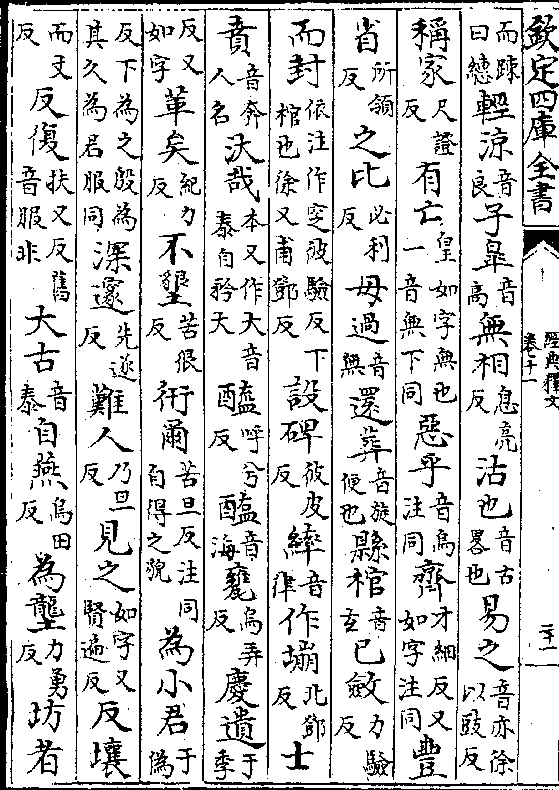 欽定四庫全書
經典釋文
卷十一
二十一
而踈曰緦輕涼音良子臯音高無相息亮反沽也音古畧也易之音亦徐以豉反
稱家尺證反有亡皇如字無也一音無下同惡乎音烏注同齊才細反又如字注同豐
省所領反之比必利反毋過音無還葬音旋便也縣棺音玄已斂力驗反
而封依注作窆彼驗反下棺也徐又甫鄧反設碑彼皮反繂音律作堋北鄧反士
賁音奔人名汏哉本又作大音泰自矜大醯呼兮反醢音海甕烏弄反慶遺于季
反又如字革矣紀力反不墾苦很反衎爾苦旦反注同自得之貌為小君于偽
反下為之殷為其久為君服同深邃先遂反難人乃旦反見之如字又賢遍反反壤
而丈反反復扶又反舊音服非大古音泰自燕烏田反為壟力勇反坊者